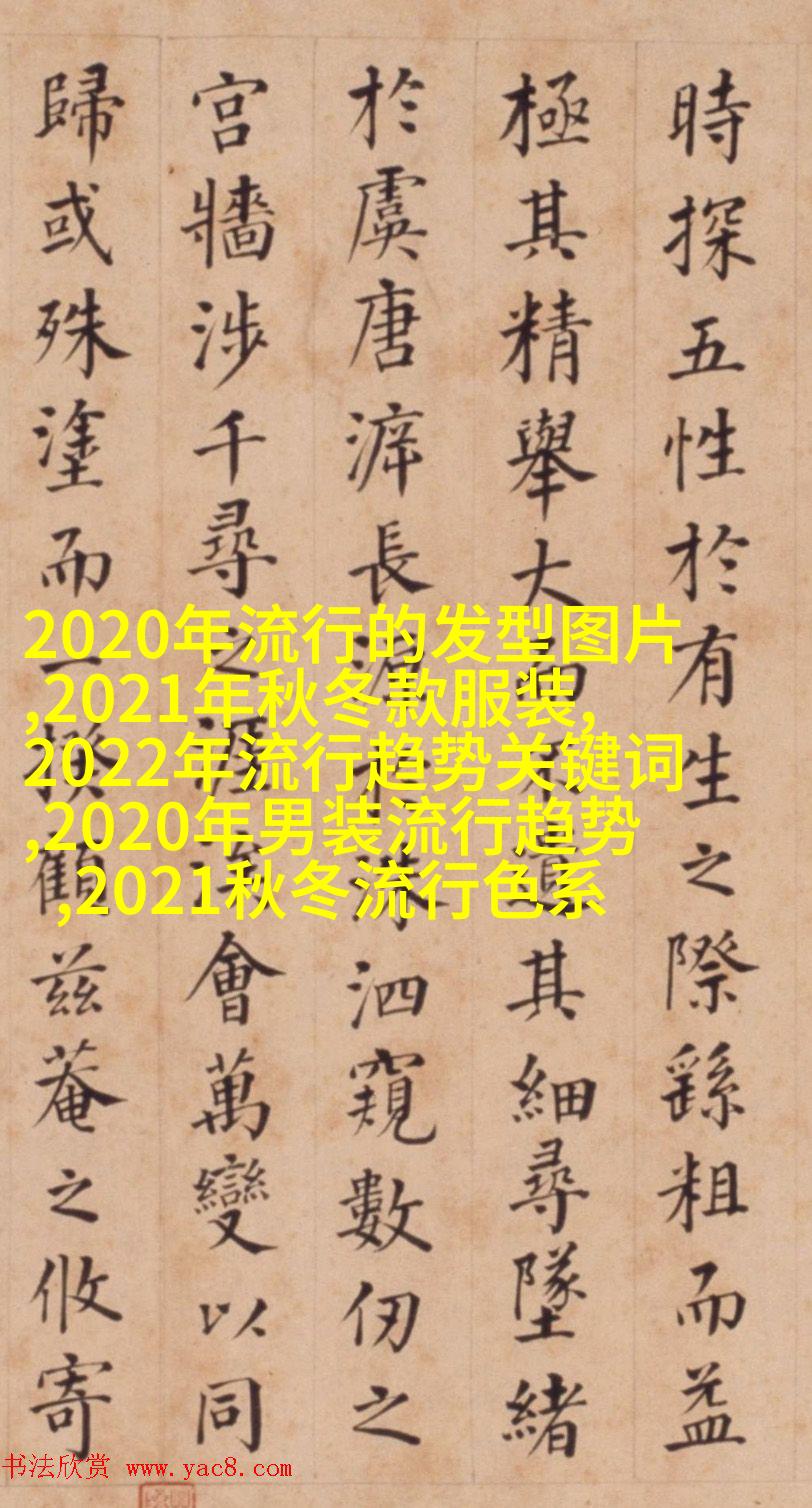 時探五性於有生之際繇粗而益
極其精舉大而不遺其細尋墜緒
於虞唐長源於洙泗窺數仞之
宮牆涉千尋之涯涘會萬變以同
歸或殊塗而一揆顧茲菴之攸寄
2020年流行的发型图片
,2021年秋冬款服装,
2022年流行趋势关键词
,2020年男装流行趋势
,2021秋冬流行色系
书法欣赏 www.yac8.com